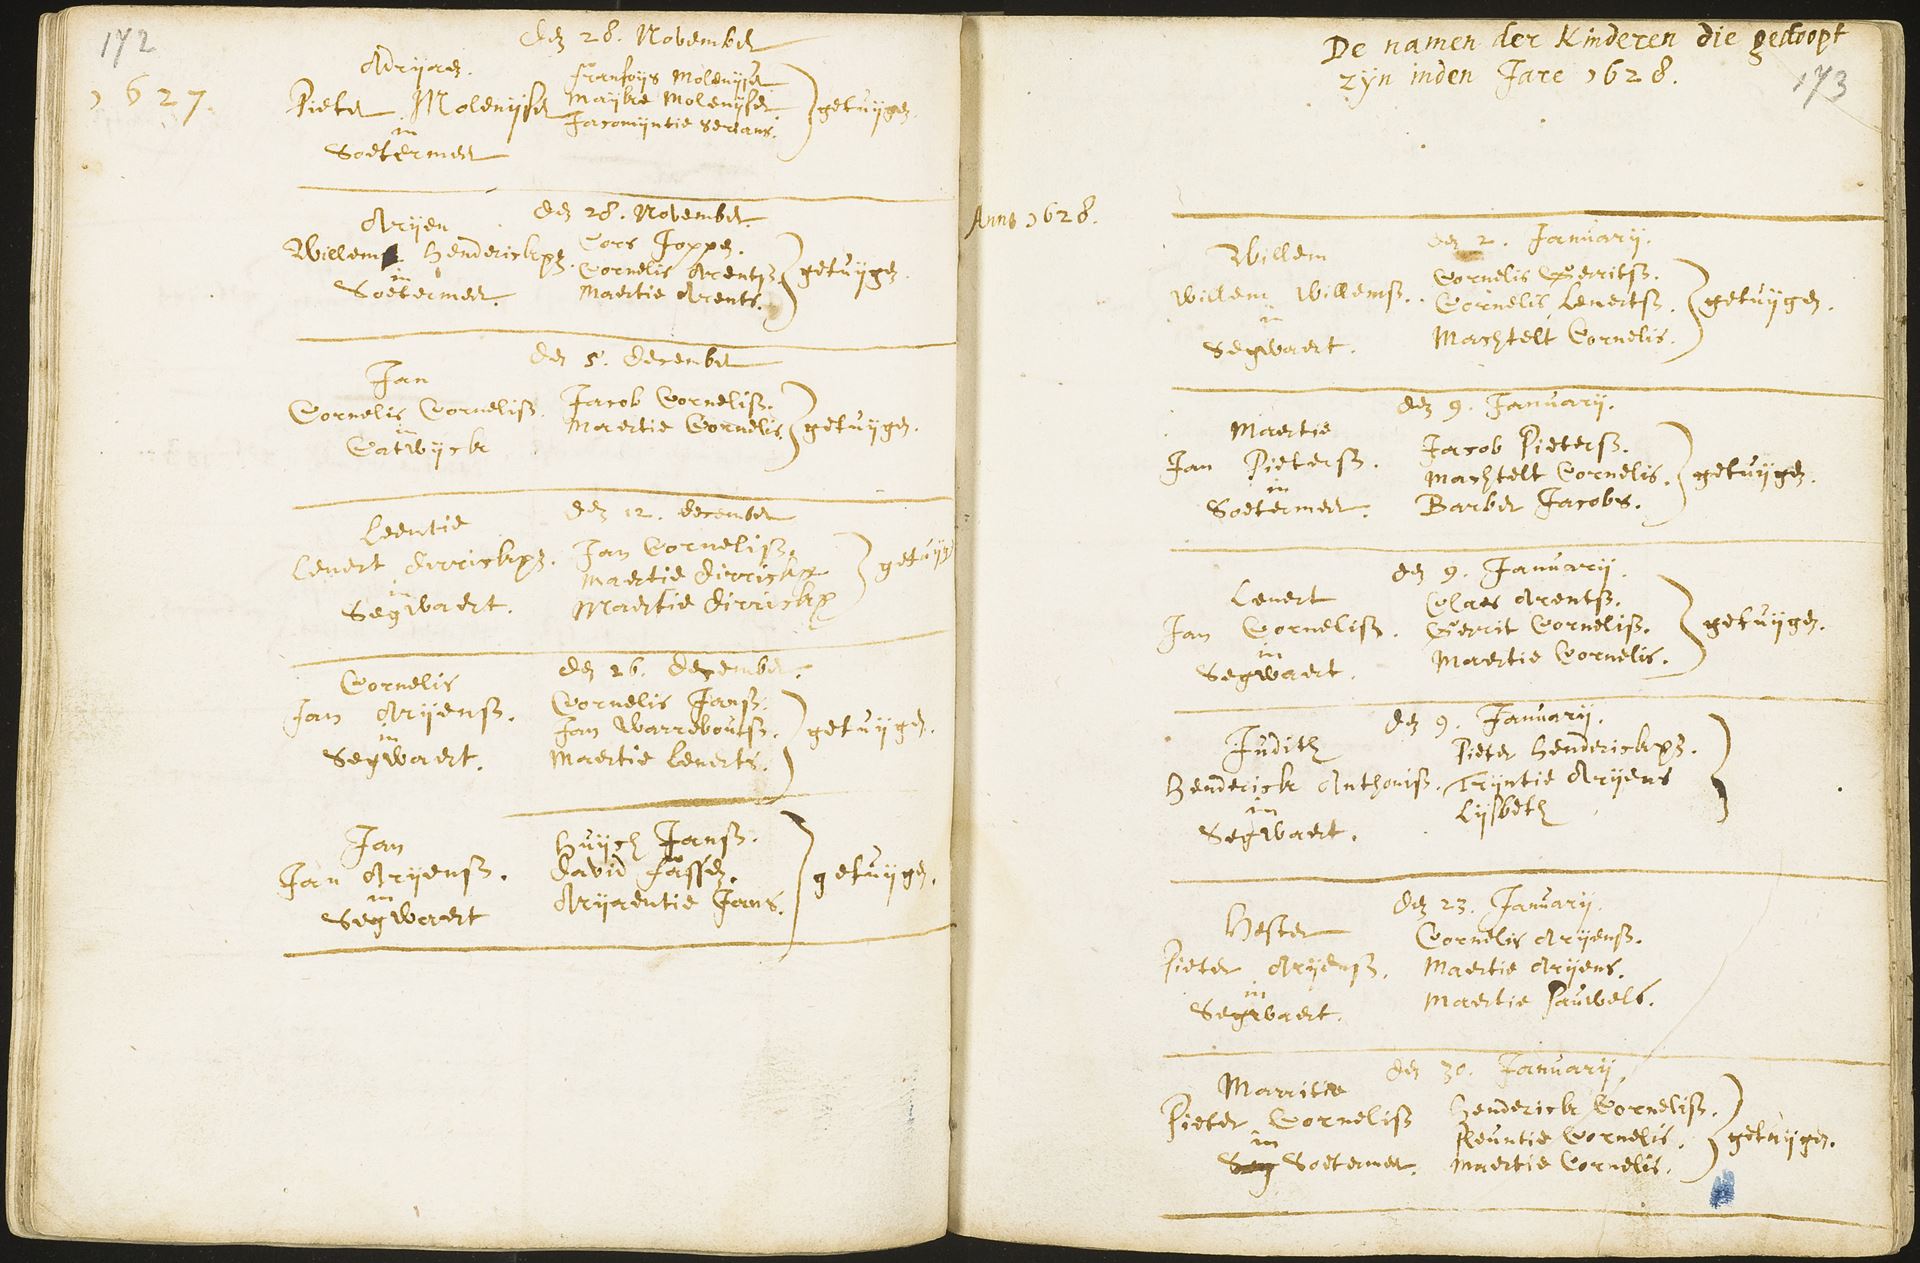 172
1627.
den 28. November
Adryaen.
Pieter Molenijser
in
Soetermeer
Fransoys Molenijser
Maijke Molenijser
Jacomijntie
getuijgen.
den 28. November.
Arijen
Willem Henderickxz.
in
Soetermeer.
Cors Joppen.
Cornelis Arentsz.
Maertie Arents.
getuijgen.
den 5. December
Jan
Cornelis Cornelisz.
in
Catwijck
Jacob Cornelisz.
Maertie Cornelis.
getuijgen.
den 12. December
Leentie
Lenert Dirrickxz.
in
Segwaert.
Jan Cornelisz.
Maertie Dirrickx
Maertie Dirrickx
getuijg
den 26. December.
Cornelis
Jan Arijensz.
in
Segwaert.
Cornelis Jansz.
Jan Warreboutsz.
Maertie Lenerts.
getuijgen.
Jan
Jan Arijensz.
in
Segwaert
Huijch Jansz.
David Fassen.
Arijaentie Jans.
getuijgen.
De namen der Kinderen die gedoopt
zyn inden Jare 1628.
173
Anno 1628.
den 2. Januarij.
Willem
Willem Willemsz.
in
Segwaert.
Cornelis Gerritsz.
Cornelis Lenertsz.
Machtelt Cornelis.
getuijgen.
den 9. Januarij.
Maertie
Jan Pietersz.
in
Soetermeer.
Jacob Pietersz.
Machtelt Cornelis.
Barber Jacobs.
getuijgen.
den 9. Januarij.
Lenert
Jan Cornelisz.
in
Segwaert.
Claes Arentsz.
Gerrit Cornelisz.
Maertie Cornelis.
getuijgen.
den 9. Januarij.
Judith
Henderick Anthonisz.
in
Segwaert.
Pieter Henderickxz.
Trijntie Arijens
Lijsbeth
den 23. Januarij.
Hester
Pieter Arijensz.
in
Segwaert.
Cornelis Arijensz.
Maertie Arijens.
Maertie Pauwels.
den 30. Januarij.
Marritie
Pieter Cornelisz
in
Seg Soetermeer.
Henderick Cornelisz.
Pleuntie Cornelis.
Maertie Cornelis.
getuijgen.